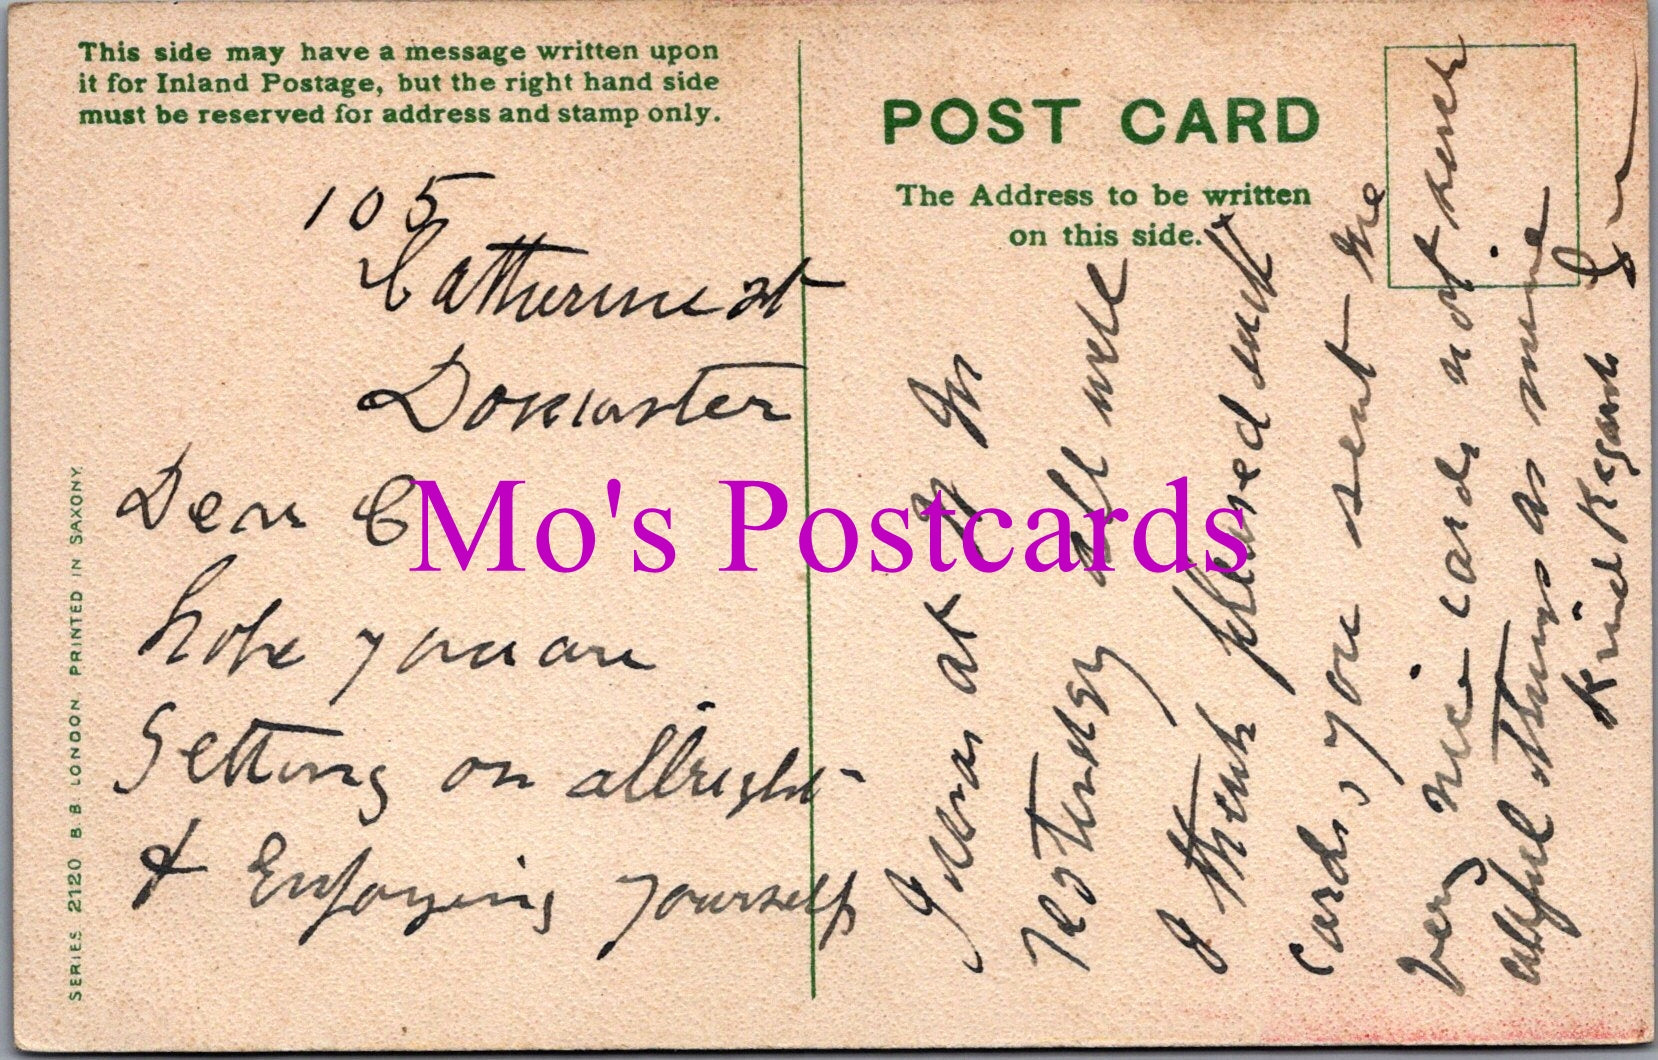 This side may have a message written upon
it for Inland Postage, but the right hand side
must be reserved for address and stamp only.
POST CARD
The Address to be written
on this side.
105
Catherine st
Doncaster
Dear C
hope you are
Getting on allright
& Enjoying yourself
I was at
yesterday all well
I think pleased with
cards, you sent me
very nice cards not such
things as mine
Kind Regards
SERIES 2120 B B LONDON. PRINTED IN SAXONY.
Mo's Postcards